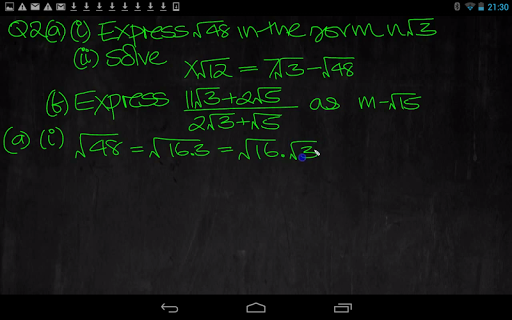 21:30
Q2(a)(i) Express √48 in the form n√3
(ii) Solve
x√12 = 7√3-√48
(b) Express 11√3+2√5 / 2√3+√5 as m-√15
(a) (i) √48 = √16.3 = √16.√3